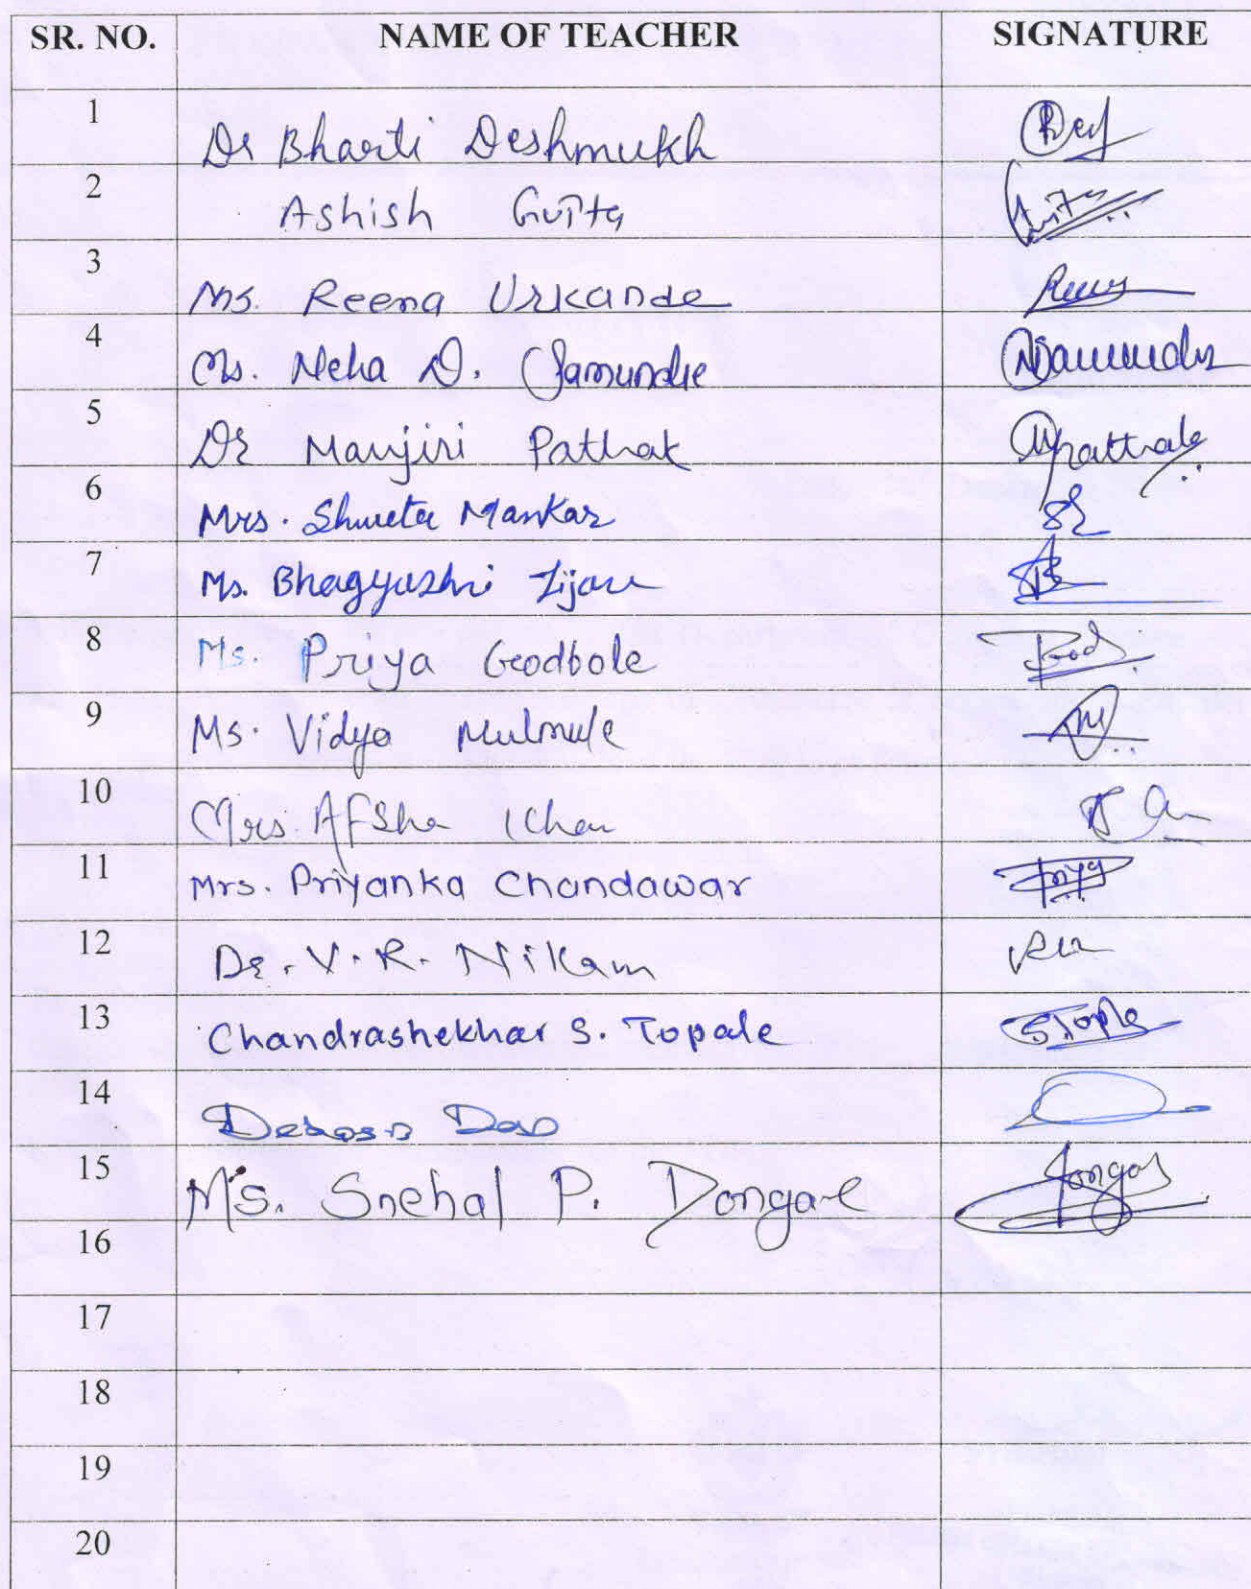 SR. NO. NAME OF TEACHER SIGNATURE
1 Dr Bharti Deshmukh
2 Ashish Gupta
3 Ms. Reena Urkande
4 Ms. Neha D. Jamundre
5 Dr Manjiri Pathak
6 Mrs. Shweta Mankar
7 Ms. Bhagyashri Zijare
8 Ms. Priya Godbole
9 Ms. Vidya Mulmule
10 Mrs. Afsha Khan
11 Mrs. Priyanka Chandawar
12 Dr. V. R. Nikam
13 Chandrashekhar S. Topale
14 Das
15 Ms. Snehal P. Dongare
16
17
18
19
20